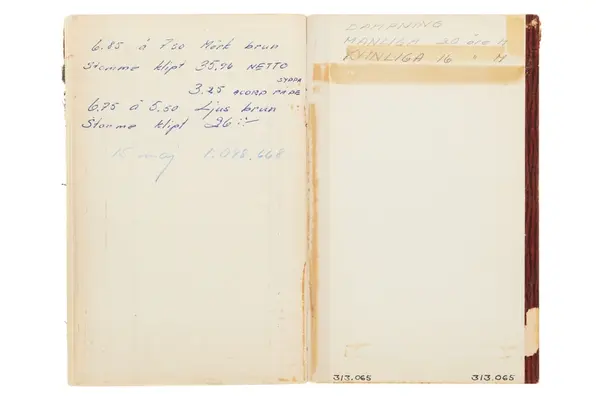 6.85 á 7.50 Mörk brun
Stomme klipt 35.96 NETTO
SYDDA
3.25
6.75 á 5.50 Ljus brun
Stomme klipt 26:-
15 maj 1.098.668
DAMANING
MANLIGA 20 öre H
KVINLIGA 16 " H
313.065 313.065